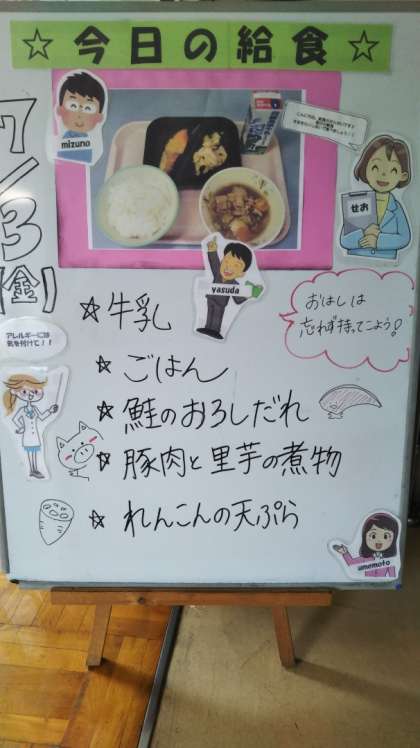 ☆今日の給食☆
7/3(金)
mizuno
せお
yasuda
☆牛乳
おはしは
忘れず持ってこよう!
アレルギーには
気を付けて!!
☆ごはん
☆鮭のおろしだれ
☆豚肉と里芋の煮物
☆れんこんの天ぷら
umemoto